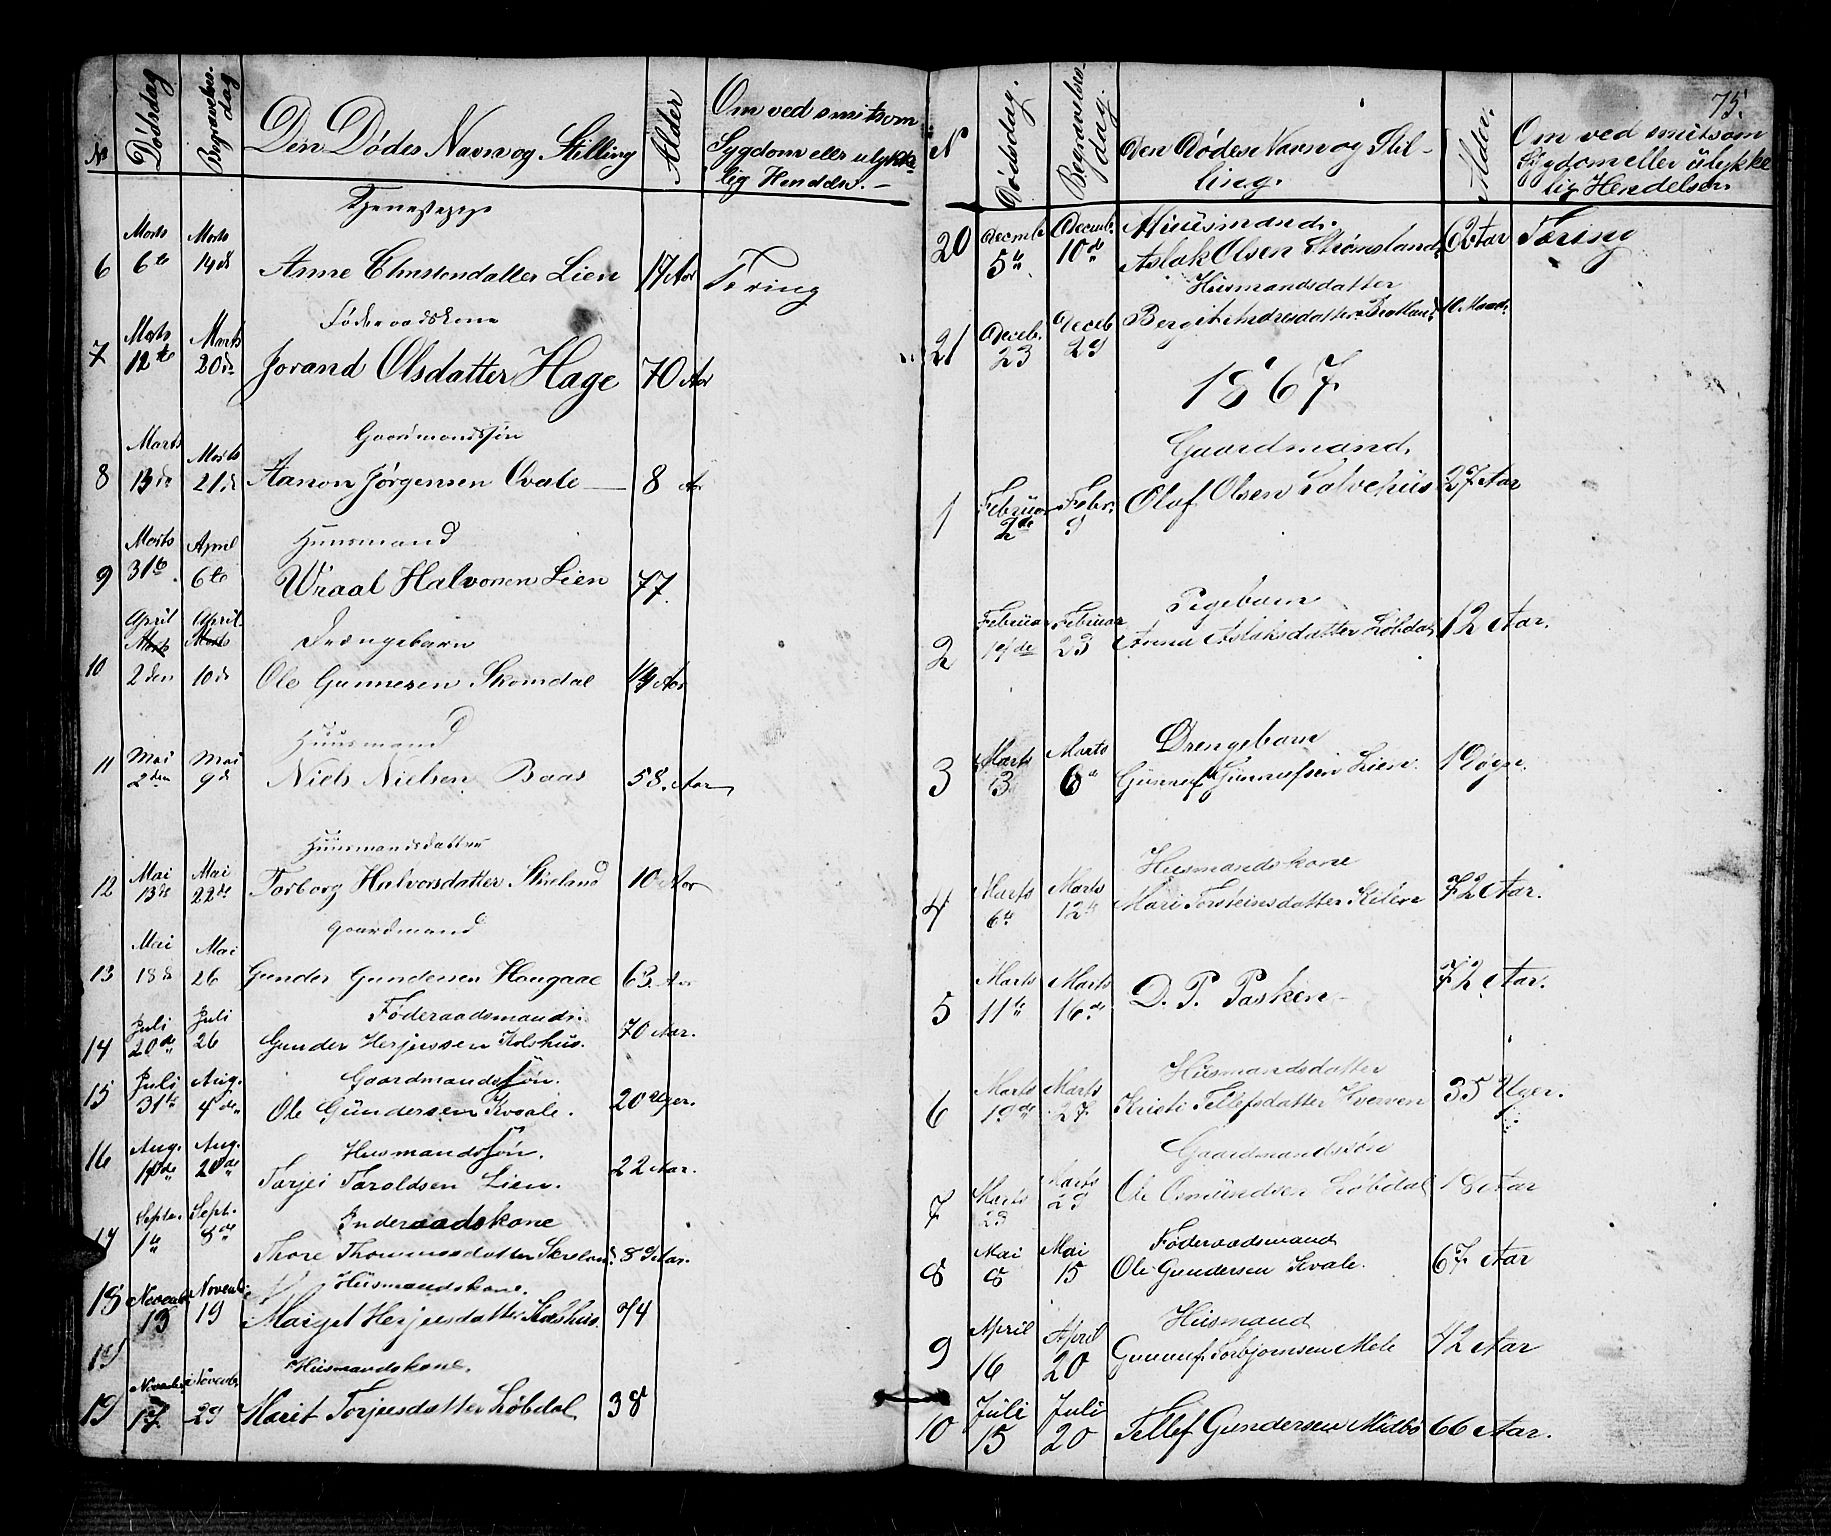 No
Dødsdag
Begravelses-
dag
Den Dødes Navn og Stilling
Alder
Om ved smitsom
Sygdom eller ulykke-
lig Hendelse. -
6 Marts 6te Marts 14de
Anne Christensdatter Lien 17 Aar Tæring
Føderaadskone
7 Marts 12te Marts 20de
Jorand Olsdatter Hage 70 Aar
Gaardmandssøn
8 Marts 13de Marts 21de
Aanon Jørgensen Qvale 8 Aar
Huusmand
9 Marts 31te April 6te
Wraal Halvorsen Lien 77
Drengebarn
10 April Marts 2den April Marts 10de
Ole Gunnersen Skomdal Aar
Huusmand
11 Mai 2den Mai 9de
Niels Nielsen Baas 58. Aar
Huusmandsdatter
12 Mai 13de Mai 22de
Torborg Halvorsdatter 10 Aar
Gaardmand
13 Mai 18de Mai 26
Gunder Gundersen Haugaae 63 Aar
Føderaadsmand
14 Juli 20de Juli 26
Gunder Herjussen Kolshus. 70 Aar.
Gaardmandssøn.
15 Juli 31te Aug. 4de
Ole Gündersen Kvaale. 20 Uger.
Husmandssøn.
16 Aug. Aug. 20de
Torjei Taraldsen Lien. 22 Aar.
Inderaadskone
17 Septr. 1te Sept. 8de
Thore Thommesdatter Aar.
Hüsmandskone.
18 Novemb. 13 Novemb. 19
Margit Herjusdatter 74
19
Hüsmandskone.
19 Novemb. 17. Novemb. 29
Marit Torjusdatter Løbdal 38
75.
N
Dødsdag.
Begravelses-
dag.
Den Dødes Navn og Stil-
ling.
Alder.
Om ved smitsom
Sygdom eller ülykke
lig Hendelse.
Huüsmand.
20 Decemb. 5te Decemb. 10de
Aslak Olsen Strømsland 62 Aar Tæring
Hüsmandsdatter
21 Deceb. 23 Deceb. 29
Bergit Andresdatter
1867
Gaardmand.
1 Februar 2de Febr. 9
Olaf Olsen 27 Aar
Pigebarn
2 Februar Februar 23
Anne Aslaksdatter Løbdal 12 Aar.
Drengebarn
3 Marts 3 Marts
Gunnuf Gunnufsen Lien. 1 Døgn.
Husmandskone
4 Marts 6te Marts 12te
Mari Torsteinsdatter Kilen 72 Aar.
5 Marts 11te Marts 16de
D. P. Pasken 72 Aar.
Hüsmandsdatter
6 Marts 19de Marts 27.
Kristi Tellefsdatter Hverven 35 Uger.
Gaardmandssøn
7 Marts 23 Marts 29
Ole Osmündsen Løbdal 18 Aar
Føderaadsmand
8 Mai 8 Mai 15
Ole Gundersen Kvale. 67 Aar
Hüsmand
9 April 16 April 20
Gunnuf Torbjornsen Mele 42 Aar
10 Juli 15 Juli 20
Tellef Gundersen Midbø 66 Aar.